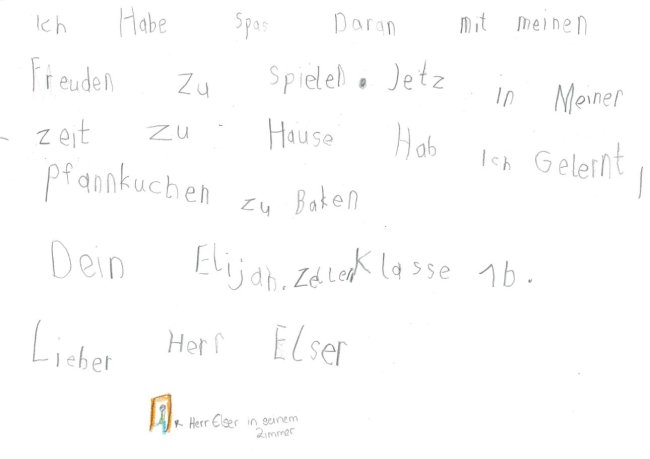 Ich Habe Spas Daran mit meinen
Freuden zu spielen. Jetz in Meiner
zeit zu Hause Hab Ich Gelernt,
Pfannkuchen zu Baken
Dein Elijah. Zeller Klasse 1b.
Lieber Herr Elser
Herr Elser in seinem
Zimmer